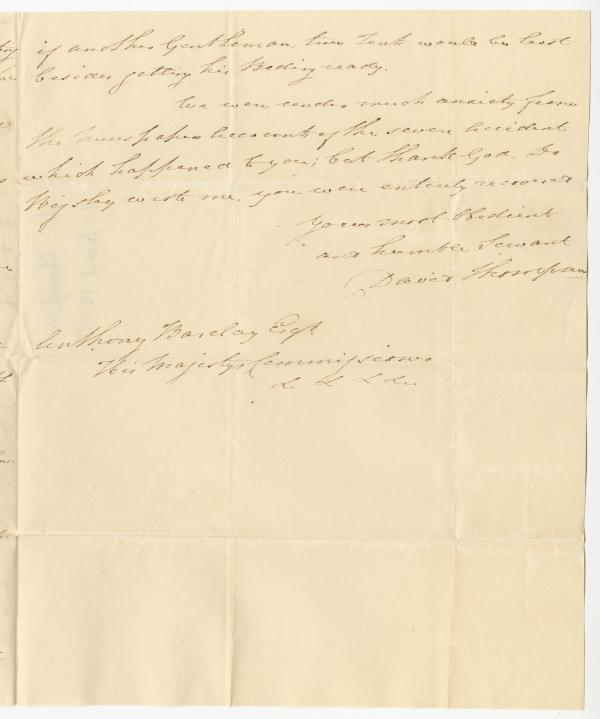 if another Gentleman, two Tents would be best
besides getting his Beding ready.
We were under much anxiety from
the Newspaper Accounts of the severe Accident
which happened to you; but thank God, Dr
Bigsby wrote me, you were entirely recovered
Your most Obedient
and humble Servant
David Thompson
Anthony Barclay Esqr
His Majestys Commissioner